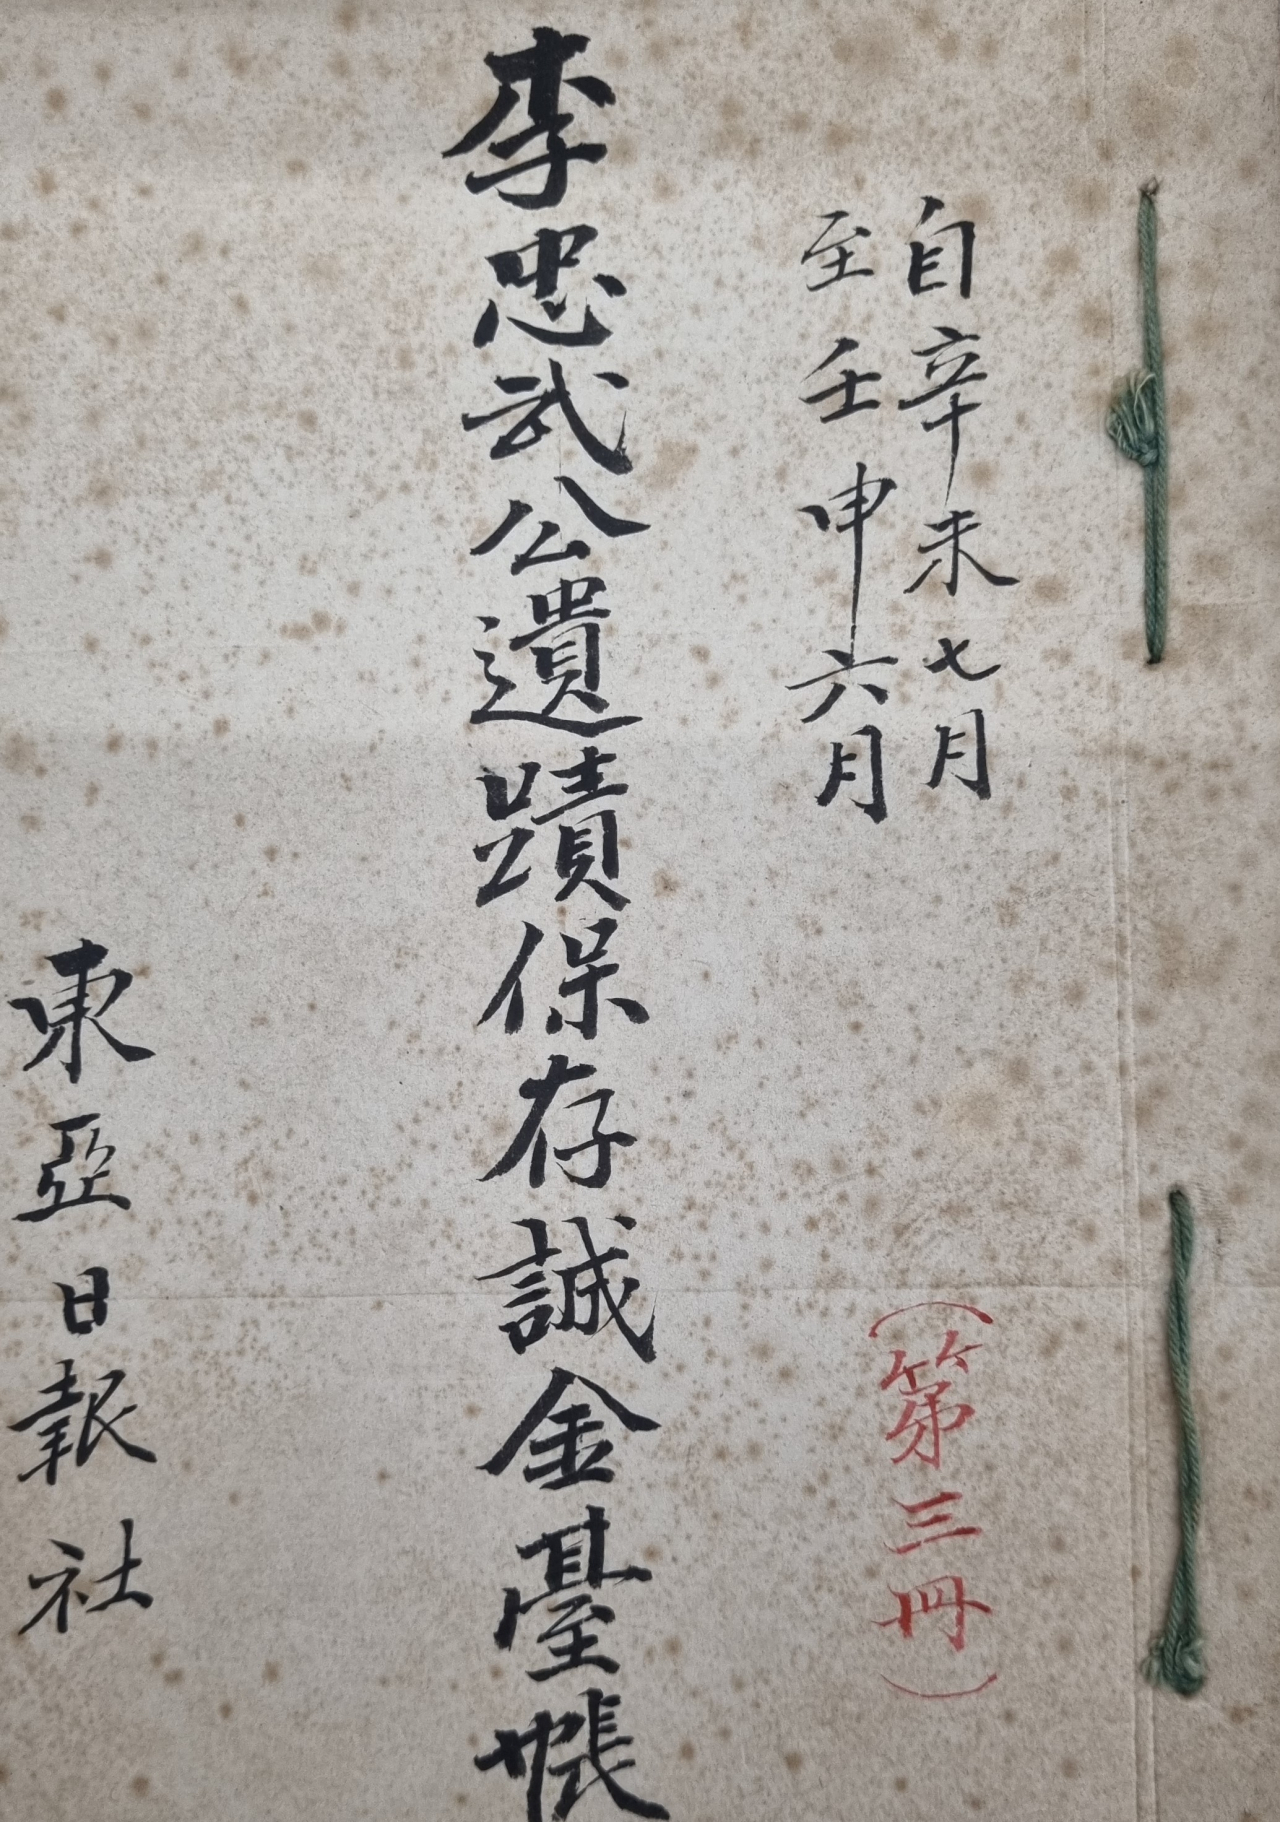 自辛未七月
至壬申六月
(第三冊)
李忠武公遺蹟保存誠金臺帳
東亞日報社